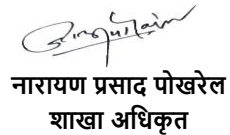 नारायण प्रसाद पोखरेल
शाखा अधिकृत